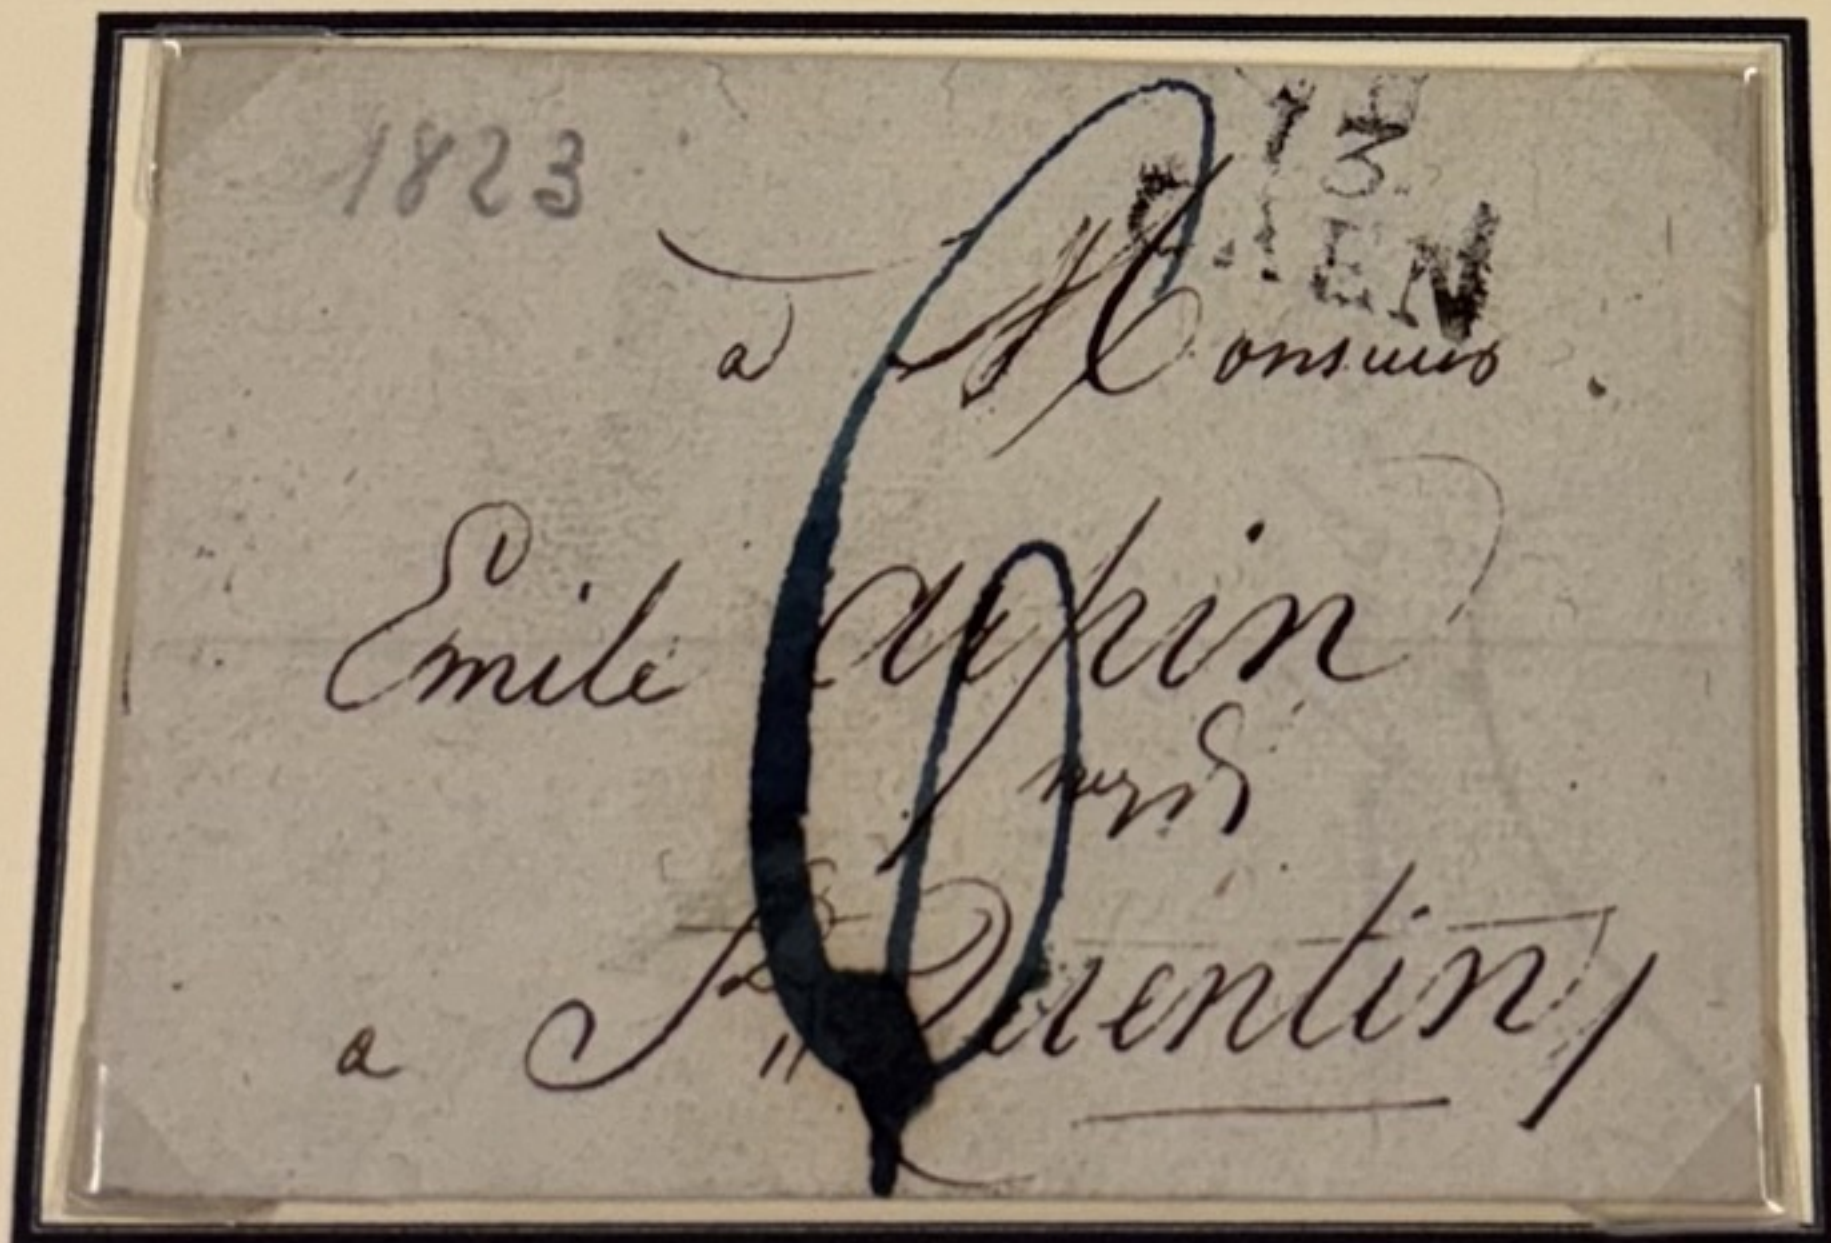 1823
13
CAEN
à Monsieur
Emile
6
negt
a St Quentin